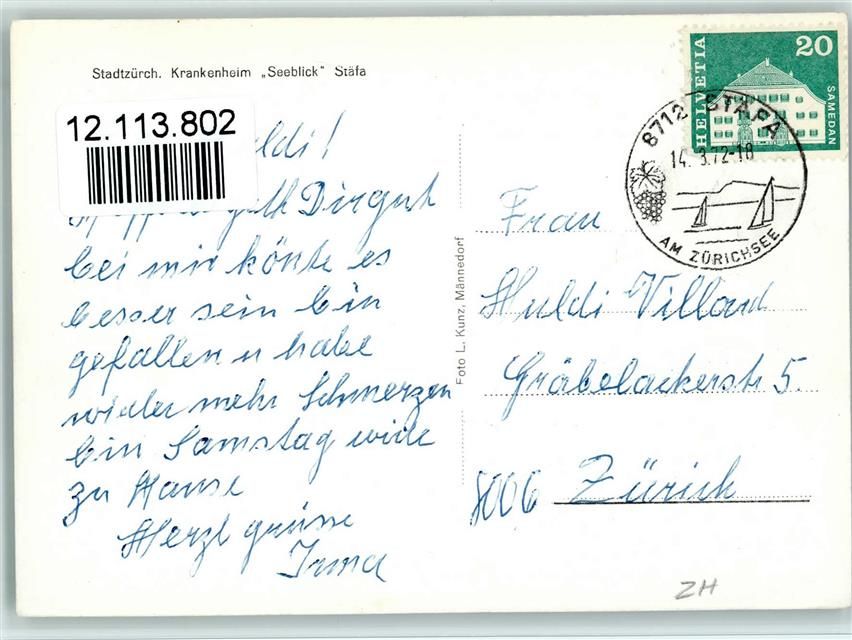 Stadtzürch. Krankenheim „Seeblick" Stäfa
12.113.802
Dir gut
bei mir könte es
besser sein bin
gefallen u habe
wieder mehr Schmerzen
bin Samstag wide
zu Hause
Herzl grüsse
Irma
Foto L. Kunz, Männedorf
HELVETIA
20
SAMEDAN
8712 STÄFA
14.3.72-18
AM ZÜRICHSEE
Frau
Huldi Villard
Gräbelackerstr 5.
8006 Zürich
ZH